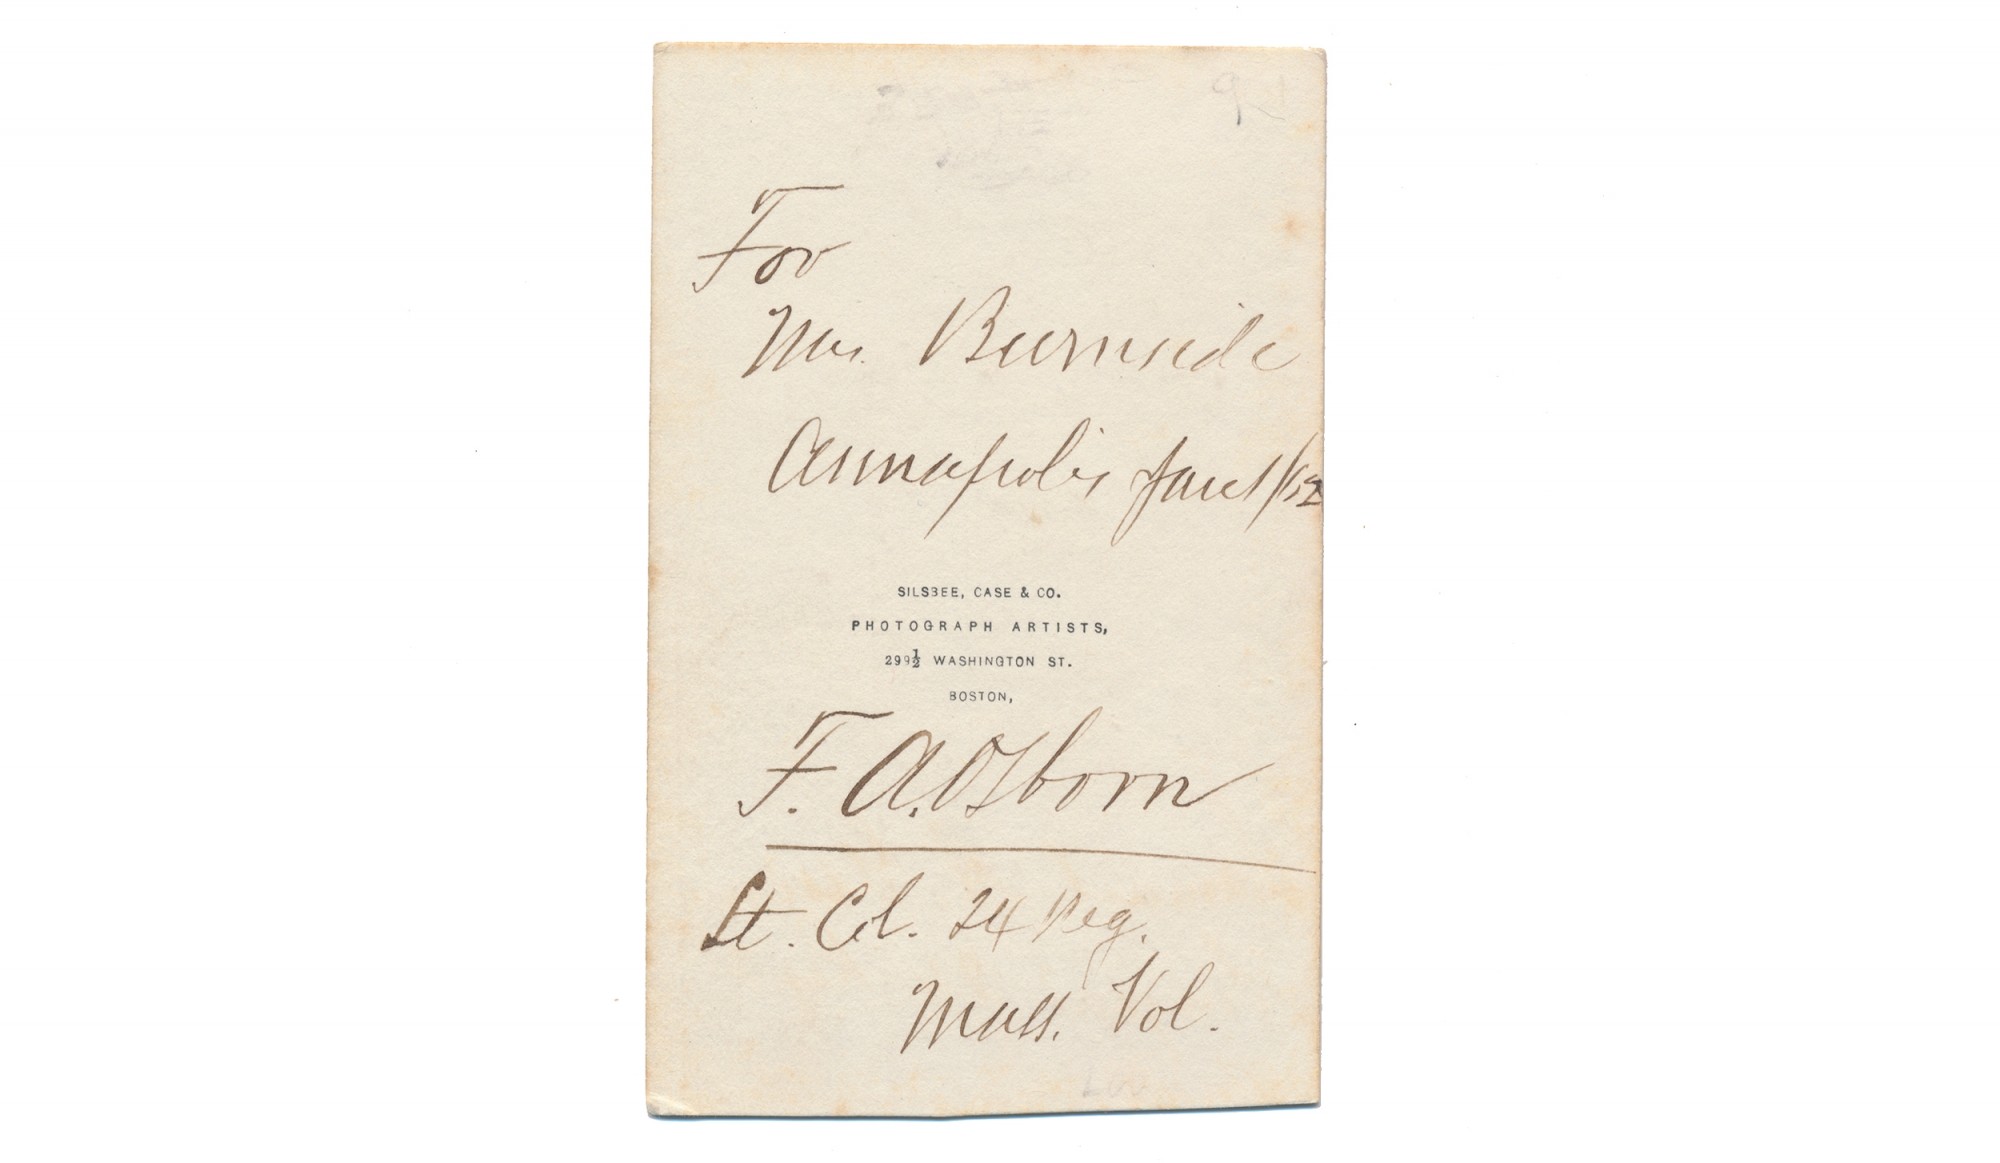 For
Mrs. Burnside
Annapolis Jan 1/62
SILSBEE, CASE & CO.
PHOTOGRAPH ARTISTS,
299½ WASHINGTON ST.
BOSTON,
F. A. Osborn
Lt. Col. 24 Reg.
Mass. Vol.